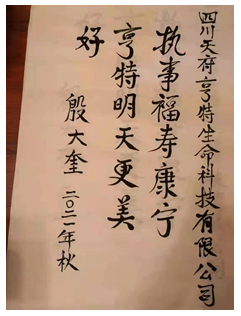 四川天府亨特生命科技有限公司
执事福寿康宁
亨特明天更美
好
殷大奎 二〇二一年秋